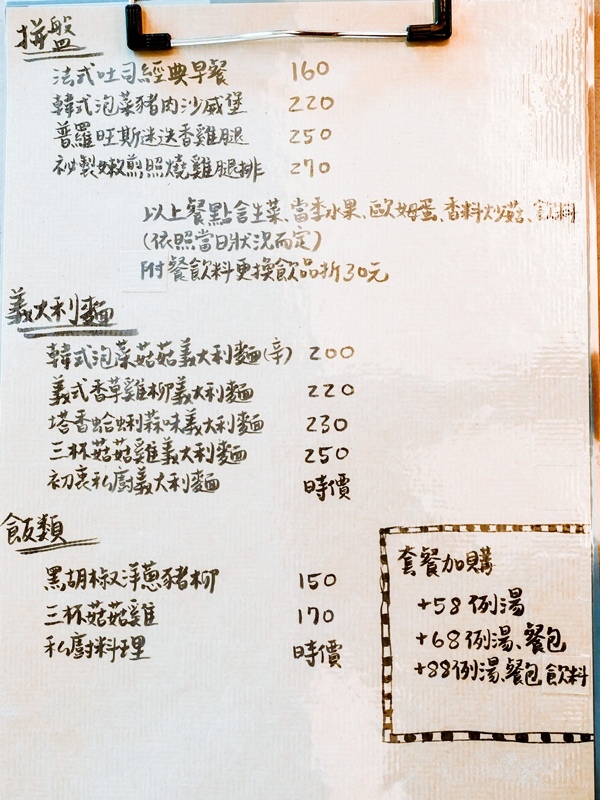 拼盤
法式吐司經典早餐 160
韓式泡菜豬肉沙威堡 220
普羅旺斯迷迭香雞腿 250
祕製嫩煎照燒雞腿排 270
以上餐點含生菜、當季水果、歐姆蛋、香料炒菇、飲料
(依照當日狀況而定)
附餐飲料更換飲品折30元
義大利麵
韓式泡菜菇菇義大利麵(辛) 200
義式香草雞柳義大利麵 220
塔香蛤蜊蒜味義大利麵 230
三杯菇菇雞義大利麵 250
初衷私廚義大利麵 時價
飯類
黑胡椒洋蔥豬柳 150
三杯菇菇雞 170
私廚料理 時價
套餐加購
+58例湯
+68例湯、餐包
+88例湯、餐包 飲料